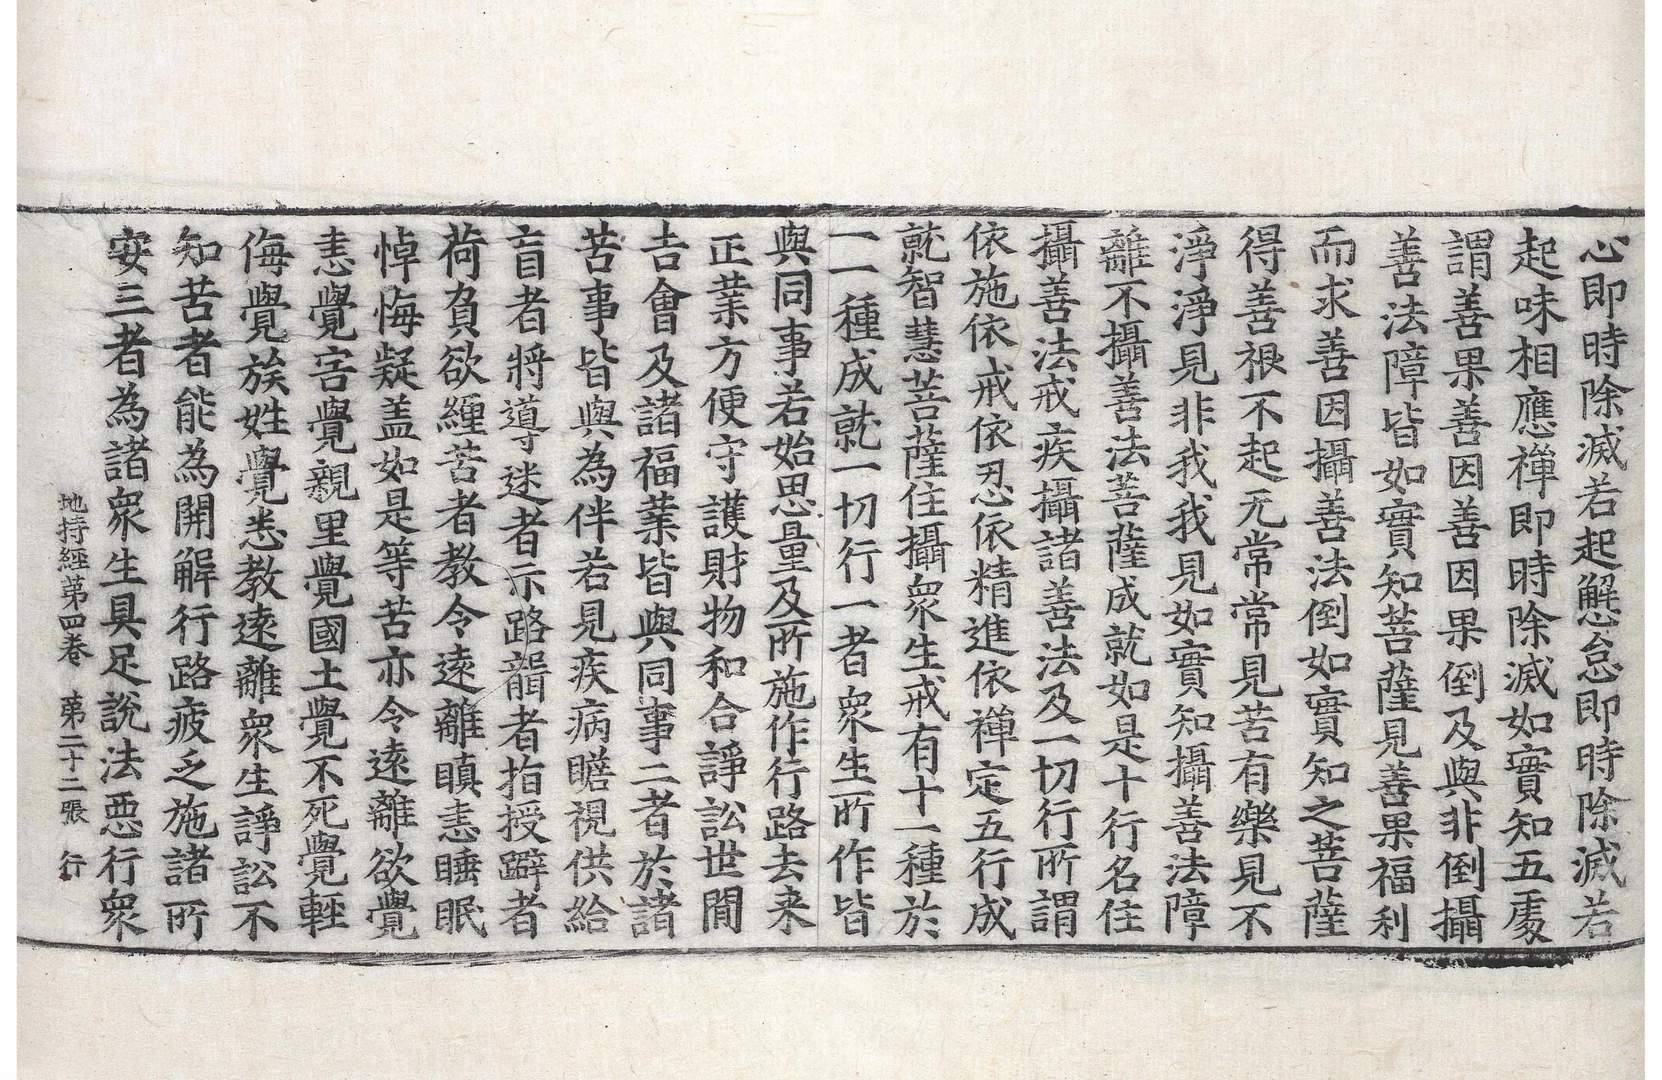 心即時除滅若起懈怠即時除滅若
起味相應禪即時除滅如實知五處
謂善果善因善因果倒及與非倒攝
善法障皆如實知菩薩見善果福利
而求善因攝善法倒如實知之菩薩
得善根不起无常常見苦有樂見不
淨淨見非我我見如實知攝善法障
離不攝善法菩薩成就如是十行名住
攝善法戒疾攝諸善法及一切行所謂
依施依戒依忍依精進依禪定五行成
就智慧菩薩住攝衆生戒有十一種於
一一種成就一切行一者衆生所作皆
與同事若始思量及所施作行路去来
正業方便守護財物和合諍訟世間
吉會及諸福業皆與同事二者於諸
苦事皆與為伴若見疾病瞻視供給
盲者將導迷者示路聾者指授躃者
荷負欲纏苦者教令遠離瞋恚睡眠
悼悔疑盖如是等苦亦令遠離欲覺
恚覺害覺親里覺國土覺不死覺輕
侮覺族姓覺悉教遠離衆生諍訟不
知苦者能為開解行路疲乏施諸所
安三者為諸衆生具足說法惡行衆
地持經第四卷 第二十二張 行